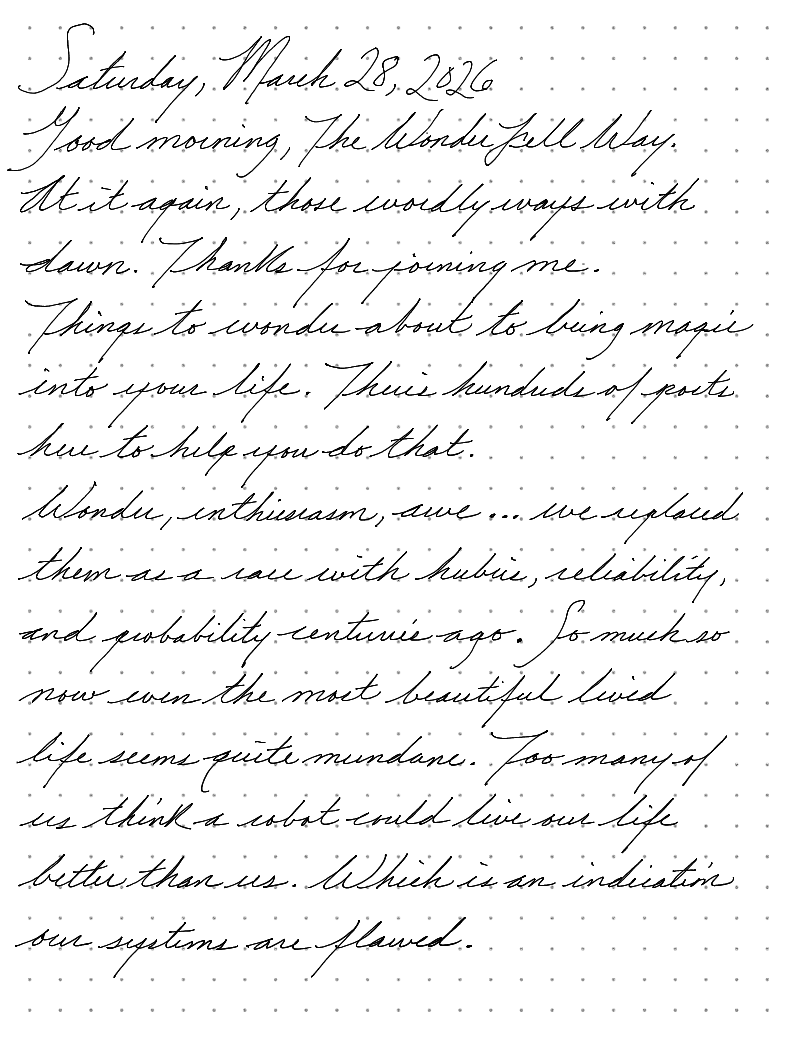 Saturday, March 28, 2026
Good morning, The Wonder Fell Way.
At it again, those wordly ways with
dawn. Thanks for joining me.
Things to wonder about to bring magic
into your life. There's hundreds of posts
here to help you do that.
Wonder, enthusiasm, awe... we replaced
them as a race with hubris, reliability,
and probability centuries ago. So much so
now even the most beautiful lived
life seems quite mundane. Too many of
us think a robot could live our life
better than us. Which is an indication
our systems are flawed.